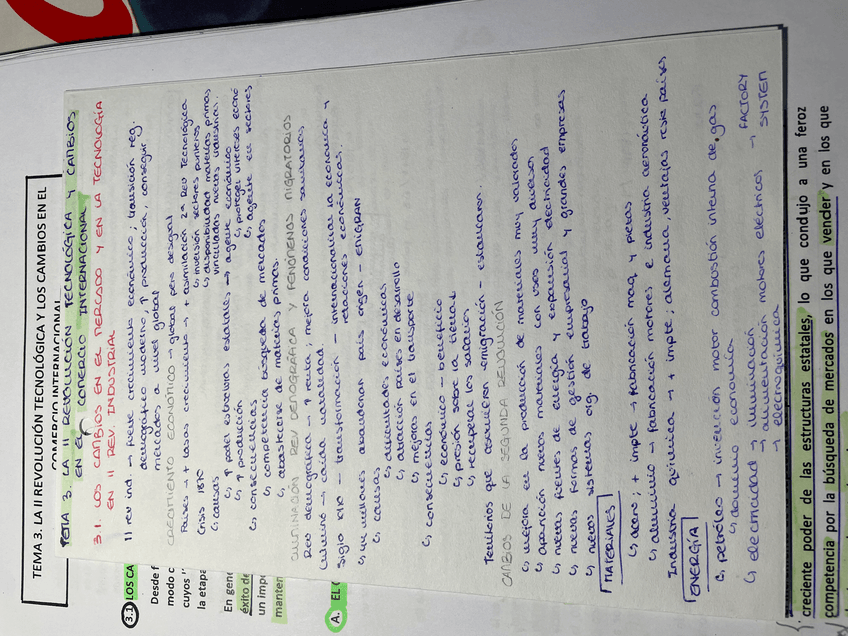 TEMA 3. LA II REVOLUCIÓN TECNOLÓGICA Y LOS CAMBIOS EN EL
COMERCIO INTERNACIONAL
3.1 LOS CA
Desde f
modo c
cuyos "
la etapa
En gene
éxito de
un impo
manten
A. EL C
TEMA 3. LA II REVOLUCIÓN TECNOLÓGICA Y CAMBIOS
EN EL COMERCIO INTERNACIONAL
3.1. LOS CAMBIOS EN EL MERCADO Y EN LA TECNOLOGÍA
EN II REV. INDUSTRIAL
II rev ind. → fuerte crecimiento económico; transición reg.
demográfico moderno, ↑ producción, conseguir
mercados a nivel global
CRECIMIENTO ECONÓMICO → global pero desigual
Países → + tasas crecimiento → + asimilación 2ª Rev Tecnológica
Crisis 1870 ↳ inversión sectores punteros
↳ causas ↳ disponibilidad materias primas
vinculadas nuevas industrias.
↳ ↑ poder estructuras estatales → agente económico
↳ ↑ producción ↳ proteger intereses econó
↳ consecuencias ↳ agente en sectores
↳ competencia búsqueda de mercados
↳ abastecerse de materias primas.
CULMINACIÓN REV DEMOGRÁFICA Y FENÓMENOS MIGRATORIOS
Rev demográfica → ↑ renta; mejora condiciones sanitarias
Culminó → caída natalidad
Siglo XIX → transformación → internacionalizar la económica y
relaciones económicas.
↳ millones abandonan país origen → EMIGRAN
↳ causas
↳ dificultades económicas
↳ atracción países en desarrollo
↳ mejoras en el transporte
↳ consecuencias
↳ económico → beneficio
↳ presión sobre la tierra ↓
↳ recuperar los salarios
Territorios que emigración → estancaron.
CAMBIOS DE LA SEGUNDA REVOLUCIÓN
↳ mejora en la producción de materiales muy variados
↳ aparición nuevos materiales con usos muy diversos
↳ nuevas fuentes de energía y expansión electricidad
↳ nuevas formas de gestión empresarial y grandes empresas
↳ nuevos sistemas org. de trabajo
MATERIALES
↳ acero; + impte → fabricación maq y piezas
↳ aluminio → fabricación motores e industria aeronáutica
Industria química → + impte; alemana ventajas resto países
ENERGÍA
↳ petróleo → invención motor combustión interna de gas
↳ dominio economía
↳ electricidad → iluminación
→ alimentación motores eléctricos → FACTORY
→ electroquímica SYSTEM
creciente poder de las estructuras estatales, lo que condujo a una feroz
competencia por la búsqueda de mercados en los que vender y en los que